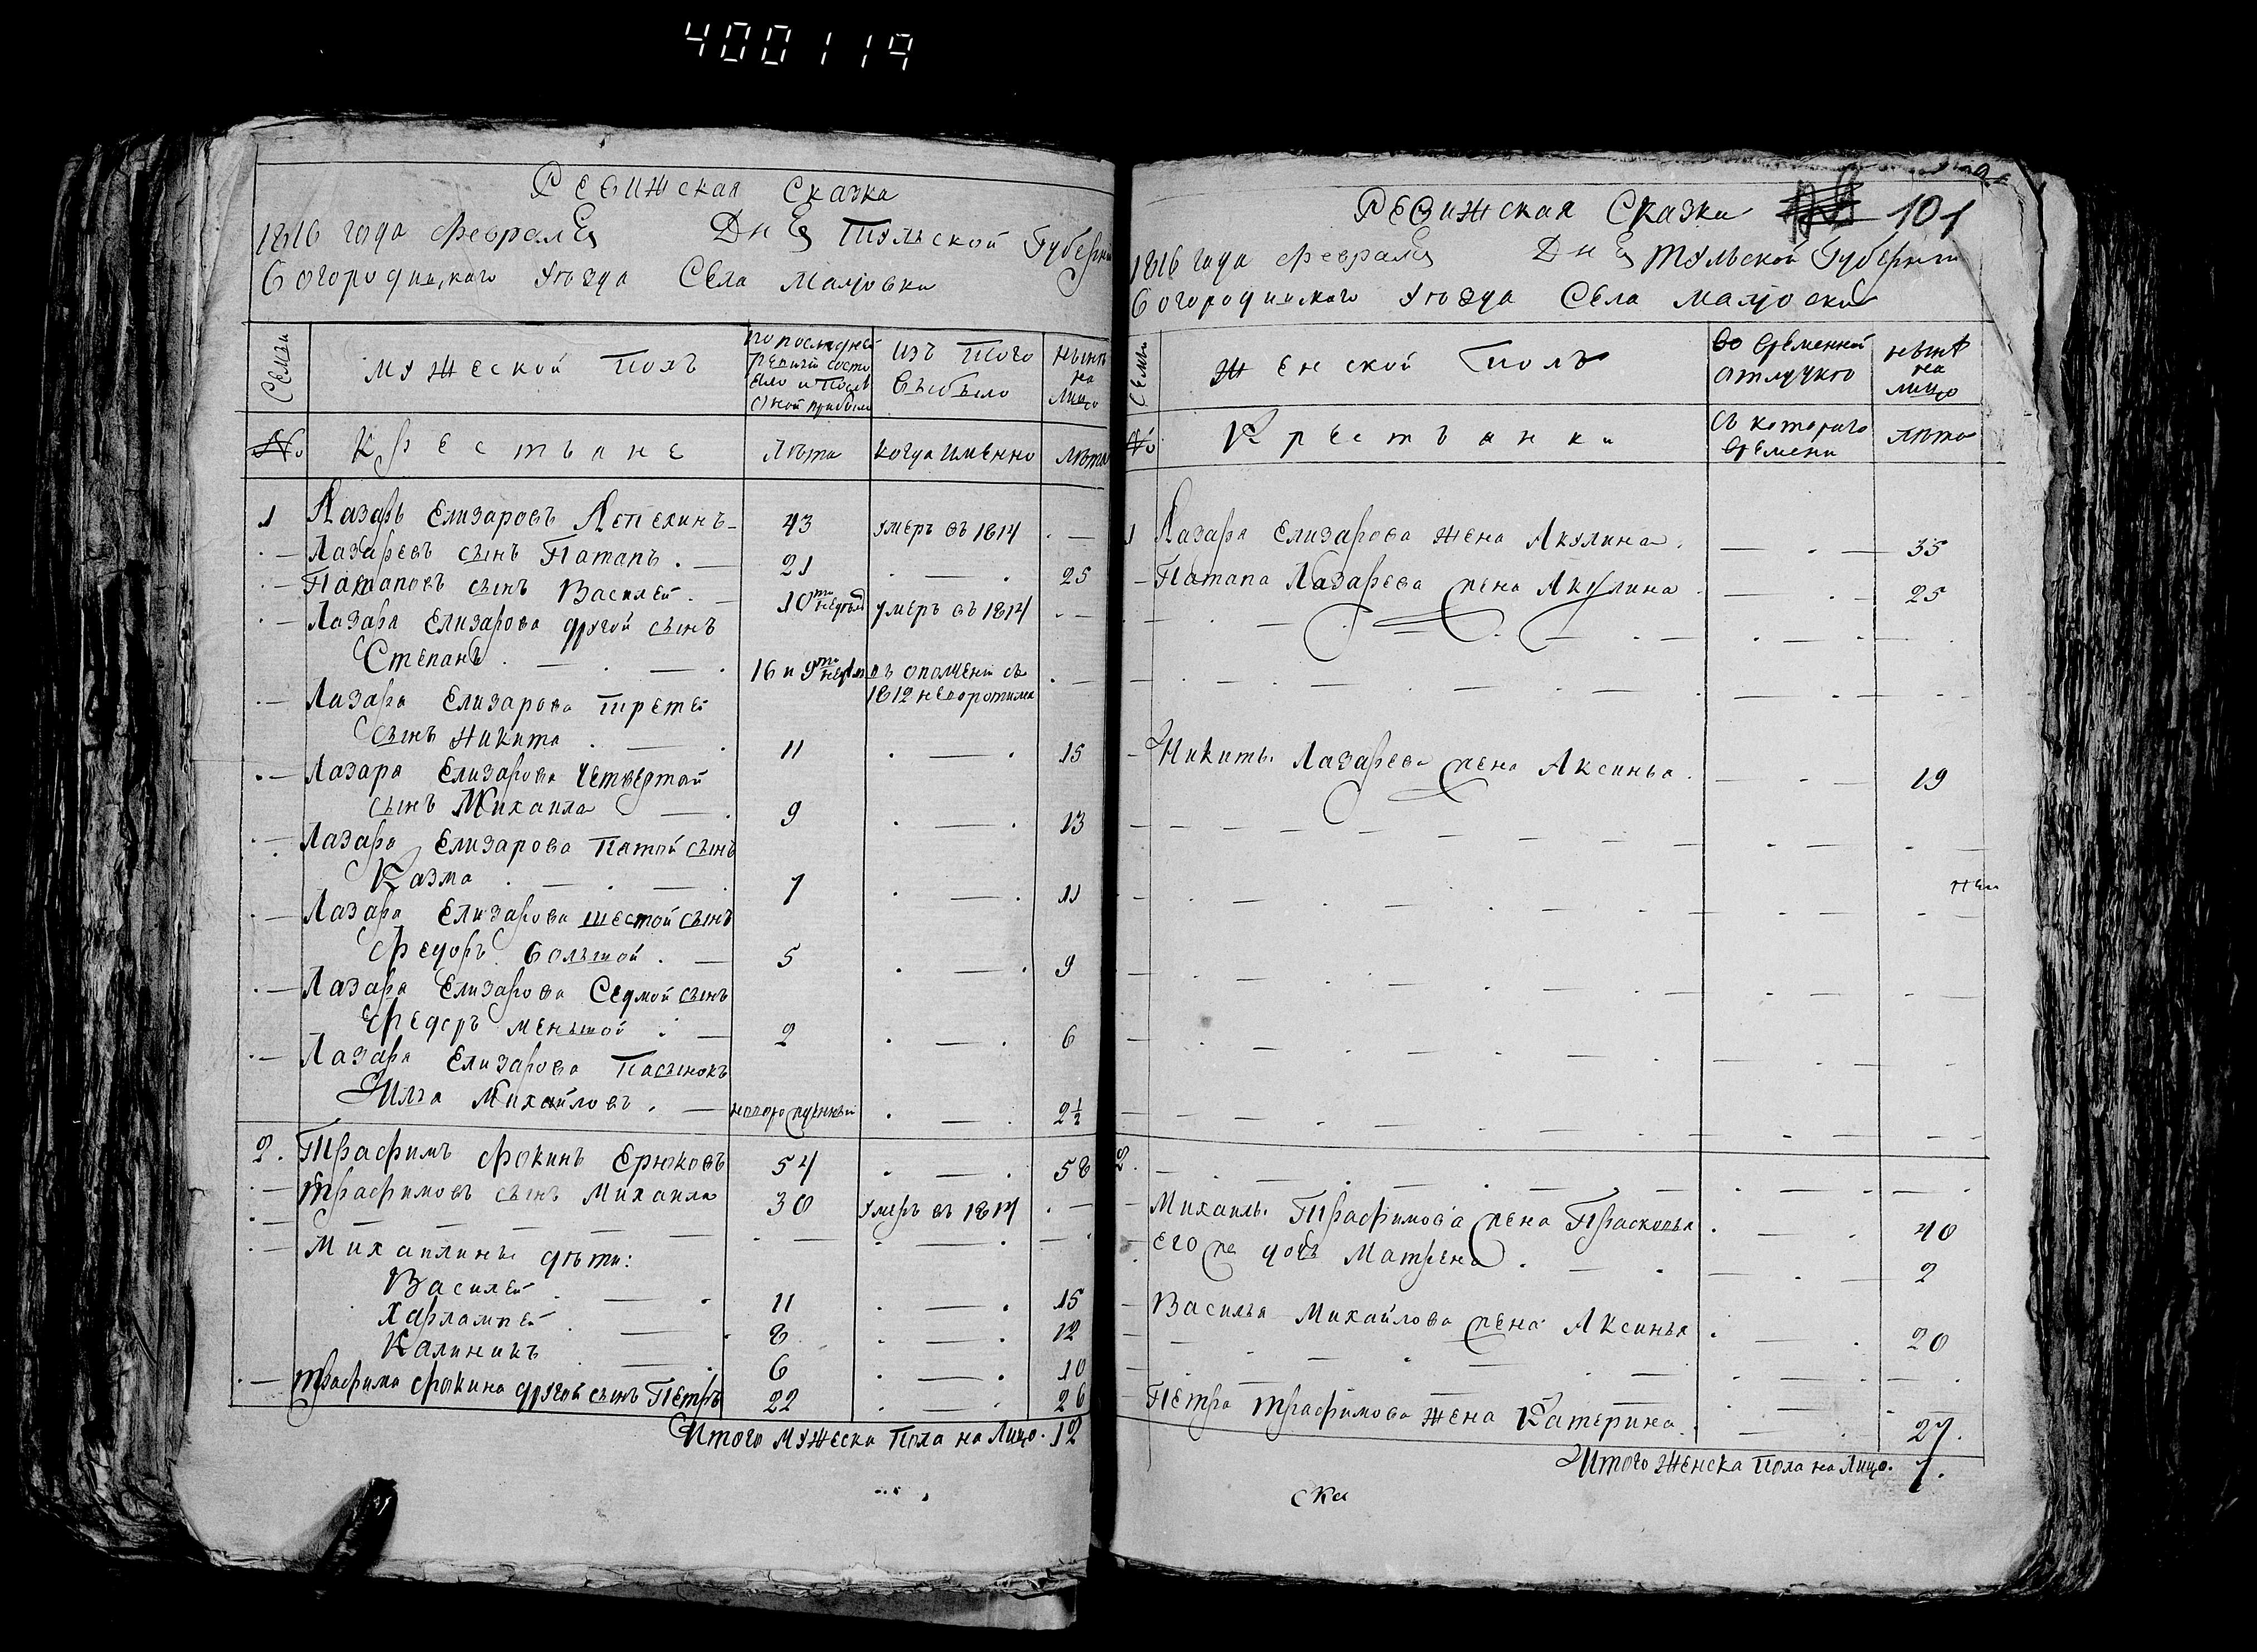 400119
Ревижская Сказка
1816 года февраля Дня Тульской Губерни
Богородицкаго Уезда Села Малӷовки
Семьи
мужеской Полъ
по последней ревизии состояло и после оной прибыло
изъ Того выбыло
нынѣ на лицо
№
Крестьяне
Лѣта
когда именно
лѣта
1 Лазарь Елизаровъ Лепехинъ 43 умеръ въ 1814
Лазаревъ сынъ Патапъ 21 25
Патаповъ сынъ Василей 10ти недель умеръ въ 1814
Лазаря Елизарова другой сынъ
Степанъ 16 и 9ти недел въ ополчени съ 1812 неворотился
Лазаря Елизарова третей
сынъ Никита 11 15
Лазаря Елизарова четвертой
сынъ Михаила 9 13
Лазаря Елизарова Пятой сынъ
Казма 7 11
Лазаря Елизарова шестой сынъ
Федоръ большой 5 9
Лазаря Елизарова Седмой сынъ
Федоръ меньшой 2 6
Лазаря Елизарова Пасынокъ
Илья Михайловъ новорожденный 2½
2. Трафимъ фокинъ Ерюковъ 54 58
Трафимовъ сынъ Михаила 30 умеръ въ 1814
Михаилины дѣти:
Василей 11 15
Харлампей 8 12
Калиникъ 6 10
Трафима фокина другой сынъ Петръ 22 26
Итого мужеска Пола на Лицо. 12
Ревижская Сказка 101
1816 года февраля Дня Тульской Губернии
Богородицкаго Уезда Села
Семьи
женской Полъ
во временной отлучке
нынѣ на лицо
№
Крестьянки
съ котораго времени
лѣта
1 Лазаря Елизарова жена Акулина 35
Патапа Лазарева жена Акулина 25
Никиты Лазарева жена Аксинья 19
2.
Михаилы Трафимова жена Прасковья 40
его же дочь Матрена 2
Василья Михайлова жена Аксинья 20
Петра Трафимова жена Катерина 27.
Итого Женска Пола на Лицо. 7.
ска